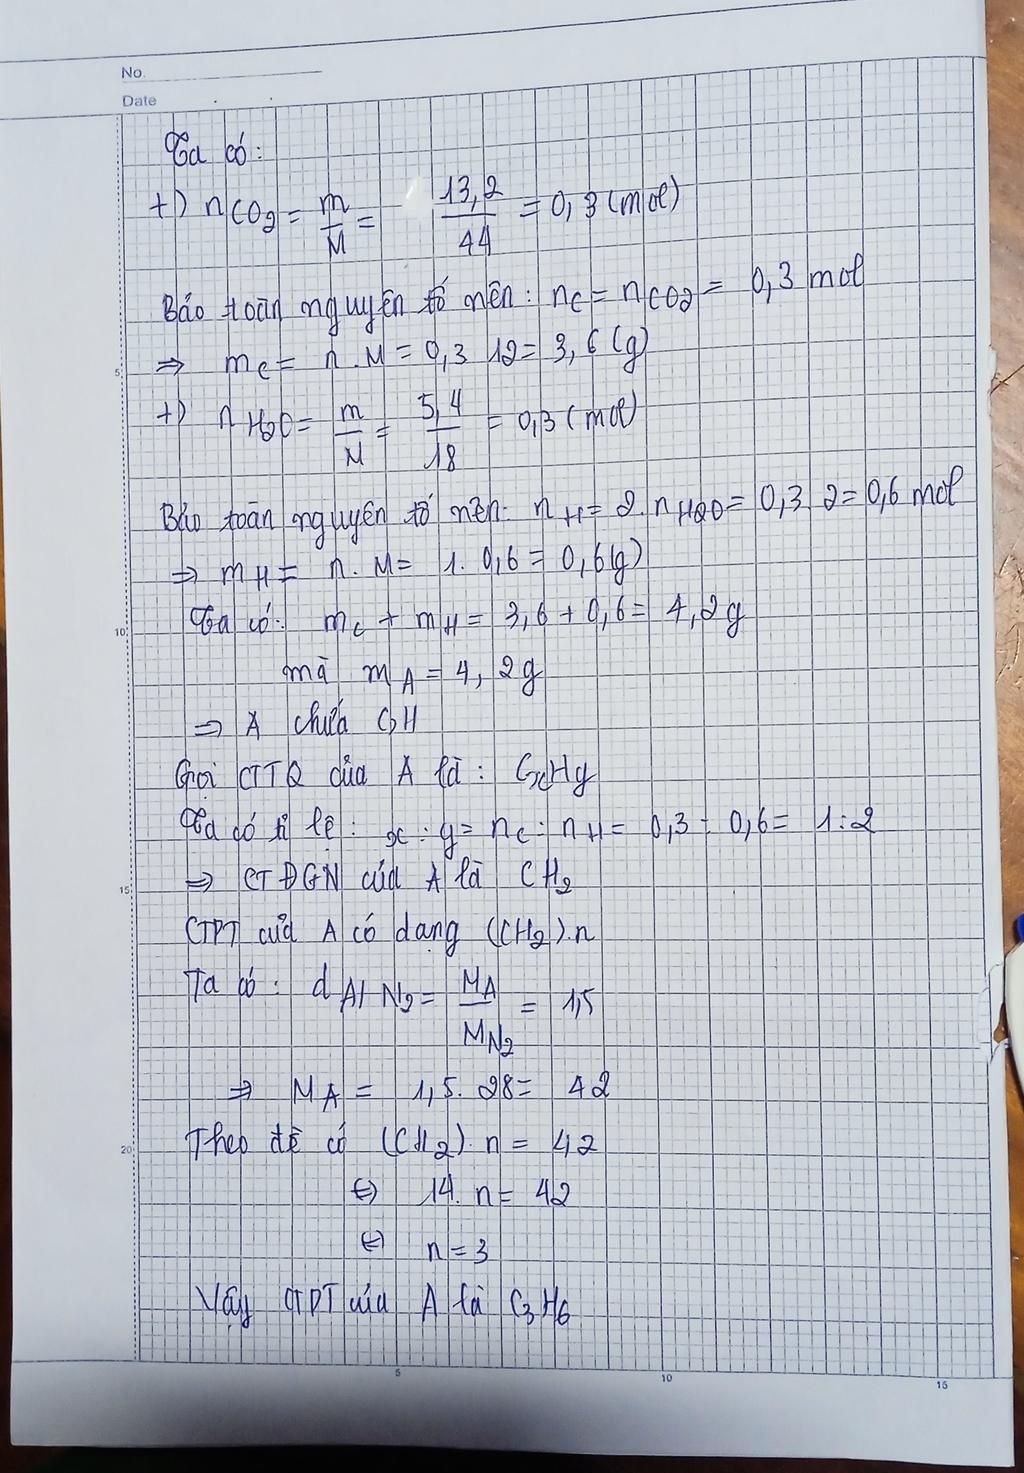 No.
Date
Ta có:
+) nCO2 = m/M = 13,2/44 = 0,3 (mol)
Bảo toàn nguyên tố nên: nC = nCO2 = 0,3 mol
⇒ mC = n.M = 0,3 12 = 3,6 (g)
+) nH2O = m/M = 5,4/18 = 0,3 (mol)
Bảo toàn nguyên tố nên: nH = 2.nH2O = 0,3.2 = 0,6 mol
⇒ mH = n.M = 1.0,6 = 0,6(g)
Ta có: mC + mH = 3,6 + 0,6 = 4,2g
mà mA = 4,2g
⇒ A chứa C,H
Gọi CTTQ của A là: CxHy
Ta có tỉ lệ: x:y = nC:nH = 0,3:0,6 = 1:2
⇒ CTĐGN của A là CH2
CTPT của A có dạng (CH2).n
Ta có: dA/N2 = MA/MN2 = 1,5
⇒ MA = 1,5.28 = 42
Theo đề có (CH2).n = 42
⇔ 14.n = 42
⇔ n = 3
Vậy CTPT của A là C3H6
5
10
15
20
5
10
15